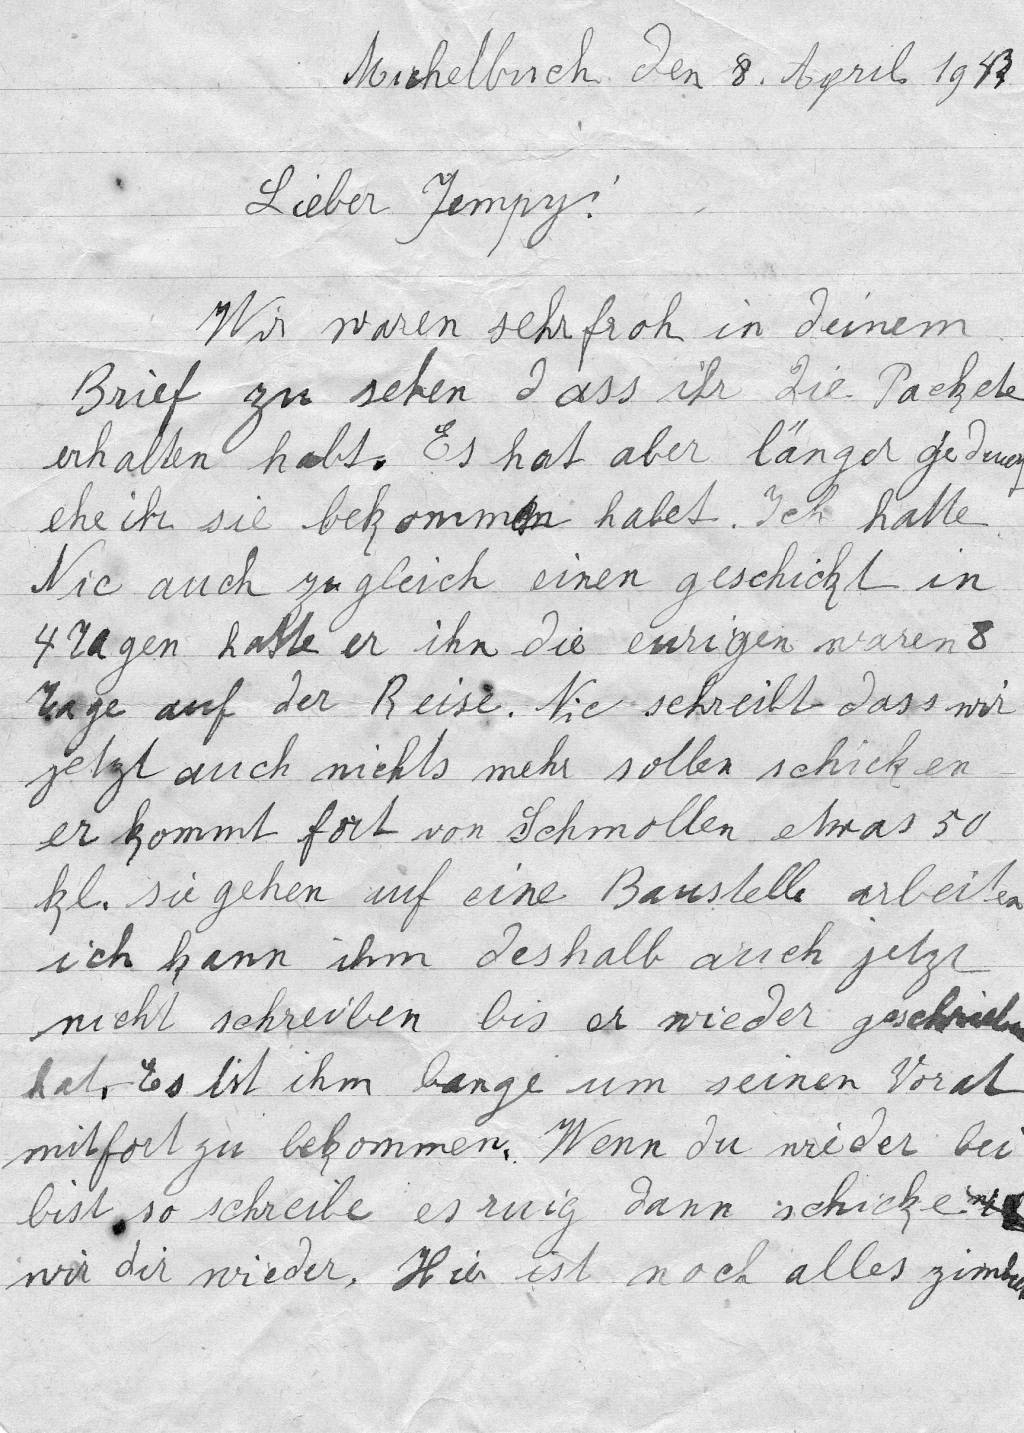 Michelbuch den 8. April 1943
Lieber Jempy!
Wir waren sehr froh in deinem
Brief zu sehen dass ihr die Packete
erhalten habt. Es hat aber länger
ehe ihr sie bekommen habet. Ich hatte
Nic auch zugleich einen geschickt in
4 Tagen hatte er ihn die eurigen waren 8
Tage auf der Reise. Nic schreibt dass wir
jetzt auch nichts mehr sollen schicken
er kommt fort von Schmollen etwas 50
kl. sie gehen auf eine Baustelle arbeiten
ich kann ihm deshalb auch jetzt
nicht schreiben bis er wieder geschrieben
hat. Es ist ihm bange um seinen Vorat
mitfort zu bekommen. Wenn du wieder bei
bist so schreibe es ruig dann schicken
wir dir wieder. Hier ist noch alles